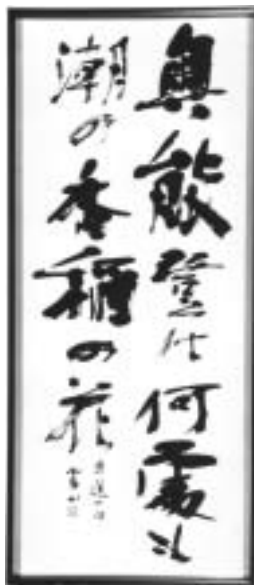 奥能登は何處も
潮の香稲の花